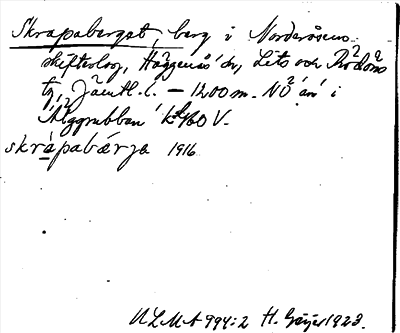 Skrapaberget, berg i Norderåsens
skifteslag, Häggenås sn, Lits och Rödöns
tg, Jämtl. l. – 1200 m. NO
Älggrubban
skrapabärja 1916
ULMA 994:2 H. Geijer 1923.